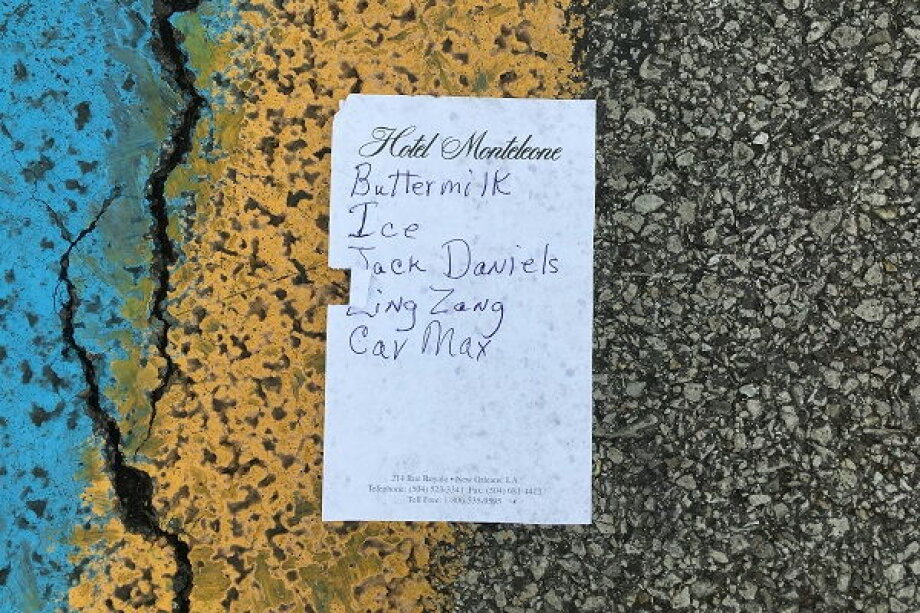 Hotel Monteleone
Buttermilk
Ice
Jack Daniels
Zing Zang
Car Max
214 Rue Royale • New Orleans, LA
Telephone: (504) 523-3341 Fax: (504)
Toll Free: